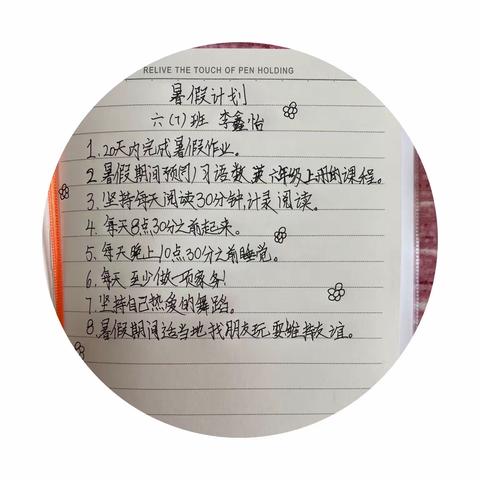 RELIVE THE TOUCH OF PEN HOLDING
暑假计划
六(7)班 李鑫怡
1.20天内完成暑假作业。
2.暑假期间预习语数英六年级上册的课程。
3.坚持每天阅读30分钟,计录阅读。
4.每天8点30分之前起来。
5.每天晚上10点30分之前睡觉。
6.每天至少做一项家务!
7.坚持自己热爱的舞蹈。
8.暑假期间适当地找朋友玩耍维持友谊。